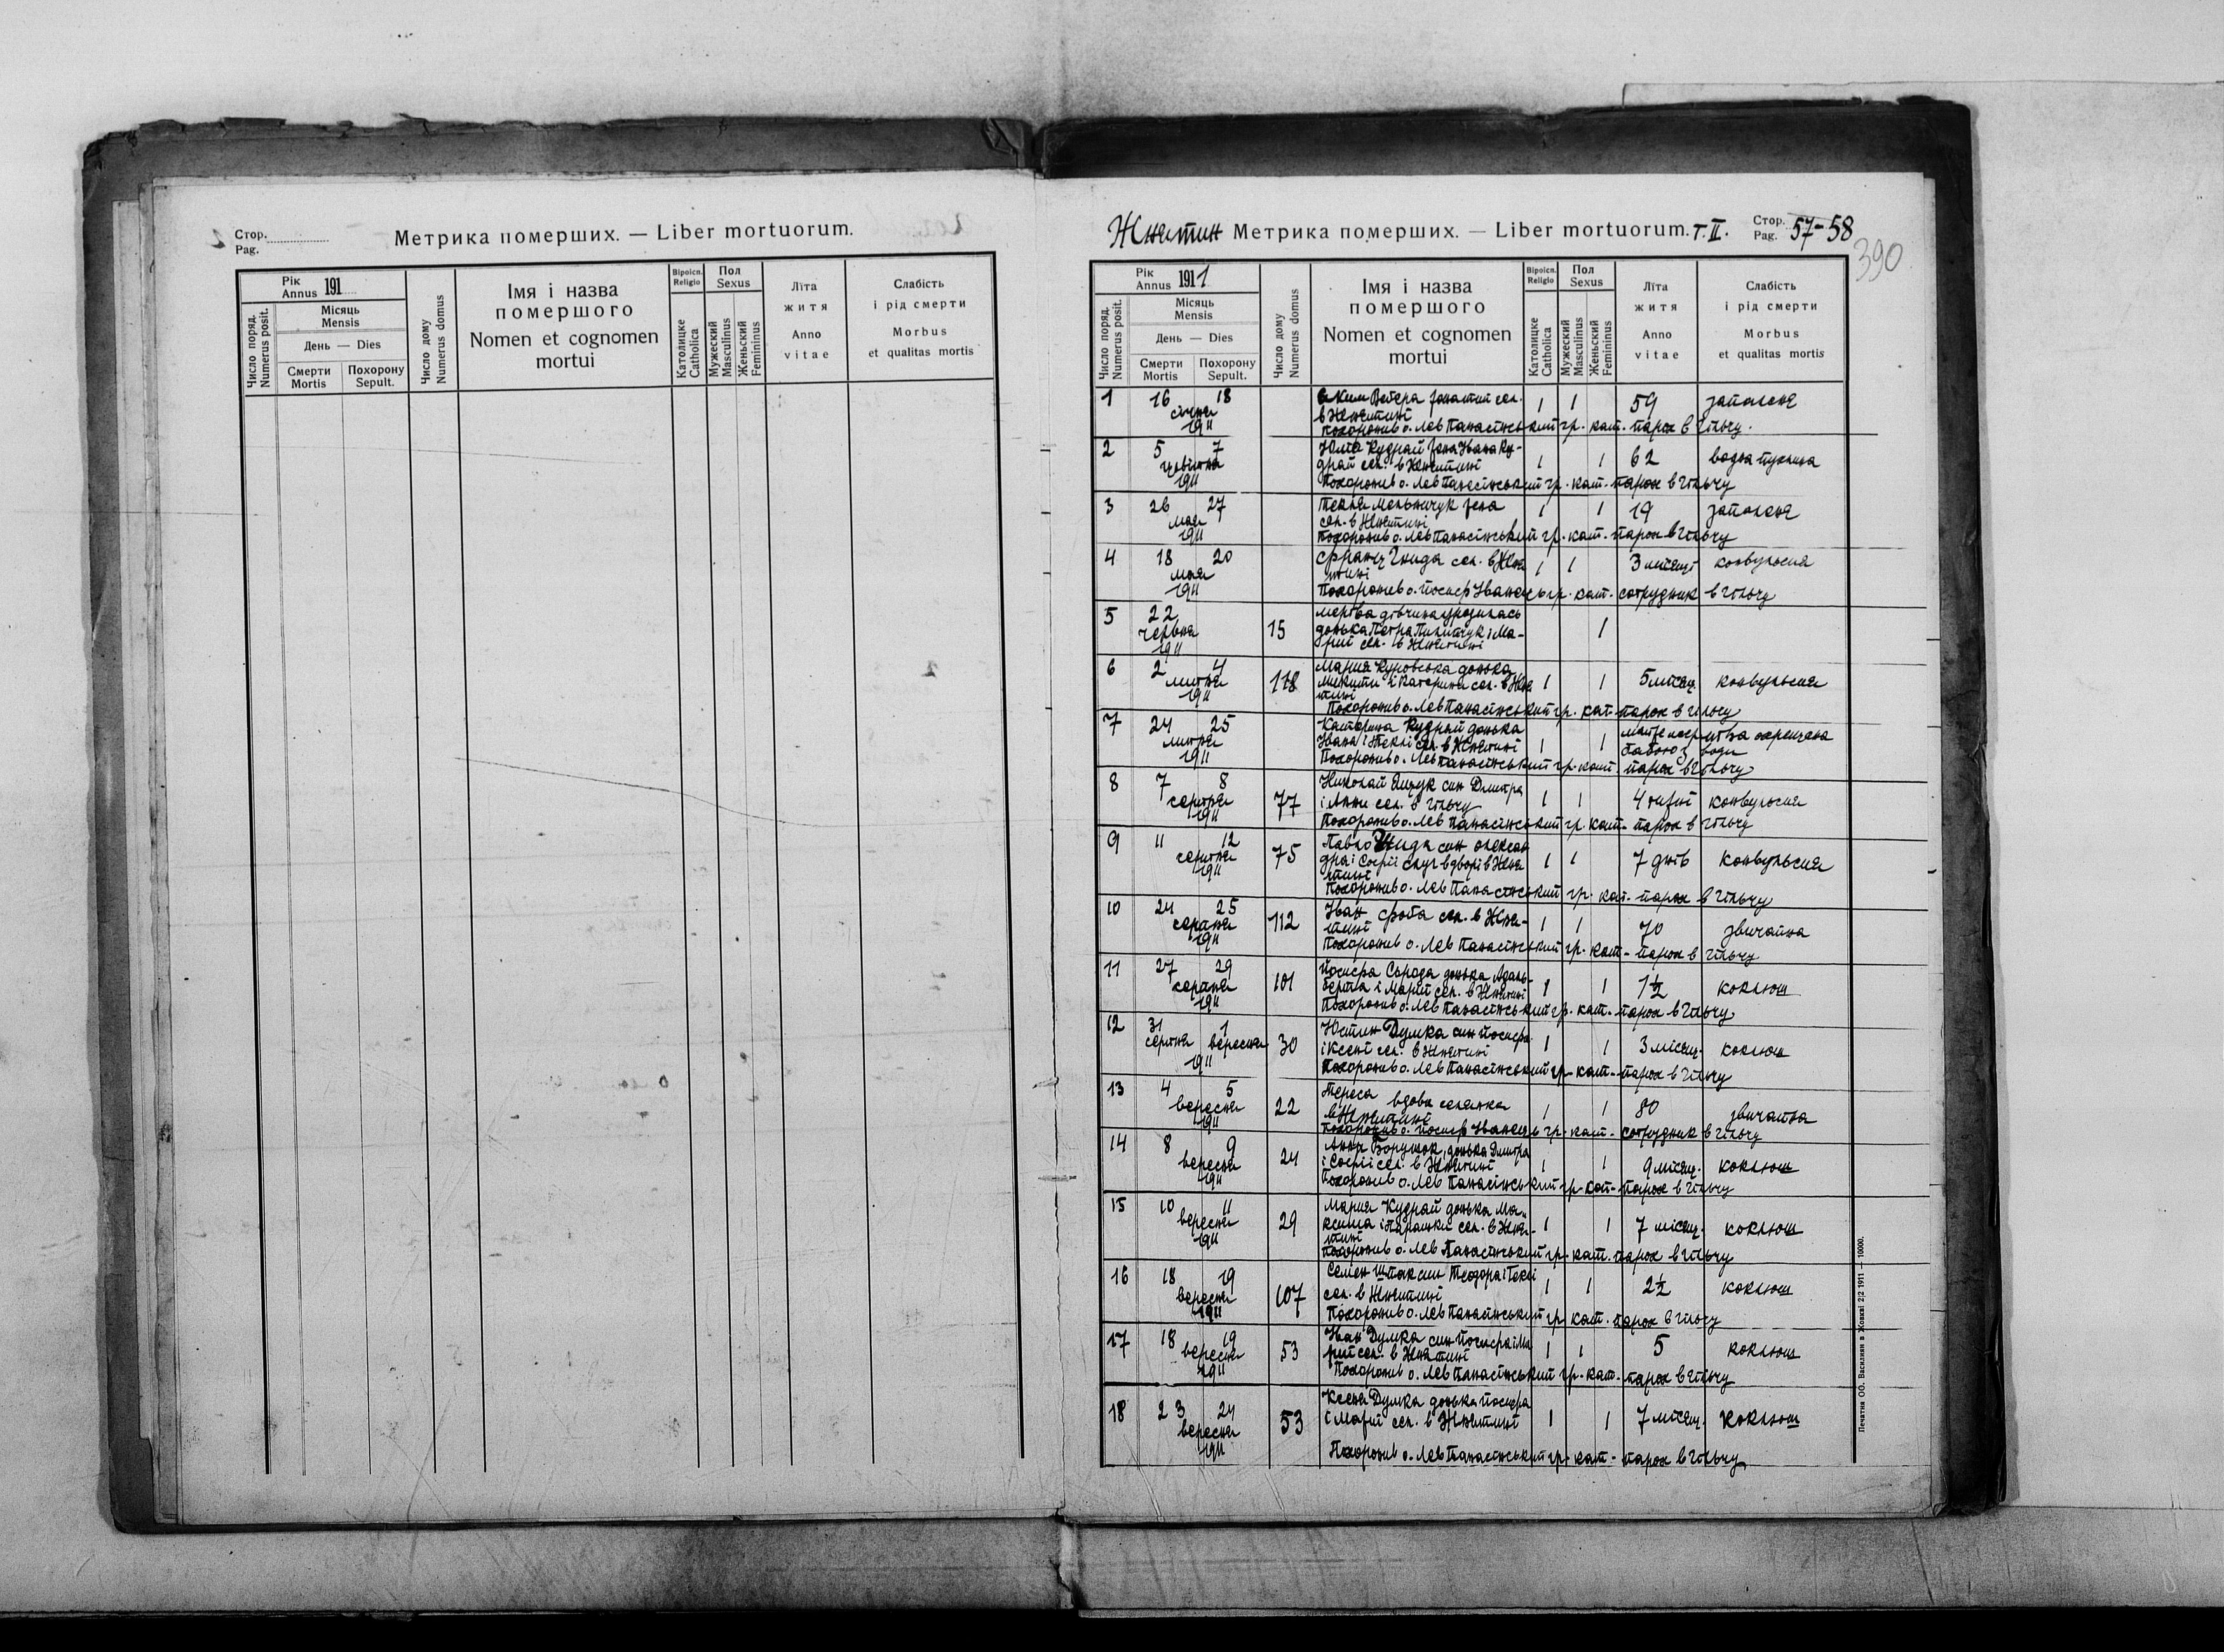 Стор.
Pag.
Метрика померших. — Liber mortuorum.
Рік
Annus 191
Місяць
Mensis
День — Dies
Число поряд.
Numerus posit.
Смерти
Mortis
Похорону
Sepult.
Число дому
Numerus domus
Імя і назва
помершого
Nomen et cognomen
mortui
Віроісп.
Religio
Католицке
Catholica
Пол
Sexus
Мужеский
Masculinus
Женьский
Femininus
Літа
житя
Anno
vitae
Слабість
і рід смерти
Morbus
et qualitas mortis
Жнятин Метрика померших. — Liber mortuorum. т. II.
Стор.
Pag. 57-58
390
Рік
Annus 1911
Місяць
Mensis
День — Dies
Число поряд.
Numerus posit.
Смерти
Mortis
Похорону
Sepult.
Число дому
Numerus domus
Імя і назва
помершого
Nomen et cognomen
mortui
Віроісп.
Religio
Католицке
Catholica
Пол
Sexus
Мужеский
Masculinus
Женьский
Femininus
Літа
житя
Anno
vitae
Слабість
і рід смерти
Morbus
et qualitas mortis
1 16 18 сел. 1 1 59 запалене
січня в Жнятині
1911 Похоронив о. Лев Панасінський гр. кат. парох в Гільчу.
2 5 7 Кудрай Івана Ку-
драй сел. в Жнятині 1 1 62 водна пухлина
1911 Похоронив о. Лев Панасінський гр. кат. парох в Гільчу
3 26 27 Текля Мельничук 1 1 19 запалене
мая сел. в Жнятині
1911 Похоронив о. Лев Панасінський гр. кат. парох в Гільчу
4 18 20 Франц Гнида сел. в Жня 1 1 3 місяці конвульсия
мая тині
1911 Похоронив о. Йосиф Іванець гр. кат. сотрудник в Гільчу
5 22 мертва дівчина уродилась
червня 15 донька Петра і Ма- 1
1911 рії сел. в Жнятині
6 2 4 Мария Куровська донька
липня 118 Микити і Катерини сел. в Жня 1 1 5 місяц. конвульсия
1911 тині
Похоронив о. Лев Панасінський гр. кат. парох в Гільчу
7 24 25 Катерина Кудрай донька
липня Івана і Теклі сел. в Жнятині 1 1 охрещена бабою з води
1911 Похоронив о. Лев Панасінський гр. кат. парох в Гільчу
8 7 8 Николай Ящук син Дмитра
серпня 77 і Анни сел. в Гільчу 1 1 4 конвульсия
1911 Похоронив о. Лев Панасінський гр. кат. парох в Гільчу
9 11 12 Павло Гнида син Олексан
серпня 75 дра і Софії слуг в дворі в Жня 1 1 7 днів конвульсия
1911 тині
Похоронив о. Лев Панасінський гр. кат. парох в Гільчу
10 24 25 Іван Фроба сел. в Жня-
серпня 112 тині 1 1 70 звичайна
1911 Похоронив о. Лев Панасінський гр. кат. парох в Гільчу
11 27 29 Йосифа Сырода донька Адаль-
серпня 101 берта і Марії сел. в Жнятині 1 1 1½ коклюш
1911 Похоронив о. Лев Панасінський гр. кат. парох в Гільчу
12 31 1 Юстин Думка син Йосифа
серпня вересня 30 і Ксені сел. в Жнятині 1 1 3 місяц. коклюш
1911 Похоронив о. Лев Панасінський гр. кат. парох в Гільчу
13 4 5 Тереса вдова селянка
вересня 22 в Жнятині 1 1 80 звичайна
1911 Похоронив о. Йосиф Іванець гр. кат. сотрудник в Гільчу
14 8 9 Анна донька Дмитра
вересня 24 і Софії сел. в Жнятині 1 1 9 місяц. коклюш
1911 Похоронив о. Лев Панасінський гр. кат. парох в Гільчу
15 10 11 Мария Кудрай донька Ма-
вересня 29 ксима і Параньки сел. в Жня- 1 1 7 місяц. коклюш
1911 тині
Похоронив о. Лев Панасінський гр. кат. парох в Гільчу
16 18 19 Семен Штак син Теодора і Теклі
вересня 107 сел. в Жнятині 1 1 2½ коклюш
1911 Похоронив о. Лев Панасінський гр. кат. парох в Гільчу
17 18 19 Іван Думка син Йосифа і Ма
вересня 53 рії сел. в Жнятині 1 1 5 коклюш
1911 Похоронив о. Лев Панасінський гр. кат. парох в Гільчу
18 23 24 Ксеня Думка донька Йосифа
вересня 53 і Марії сел. в Жнятині 1 1 7 місяц. коклюш
1911 Похоронив о. Лев Панасінський гр. кат. парох в Гільчу
Печатня ОО. Василиян в Жовкві 2|2 1911 — 10000.